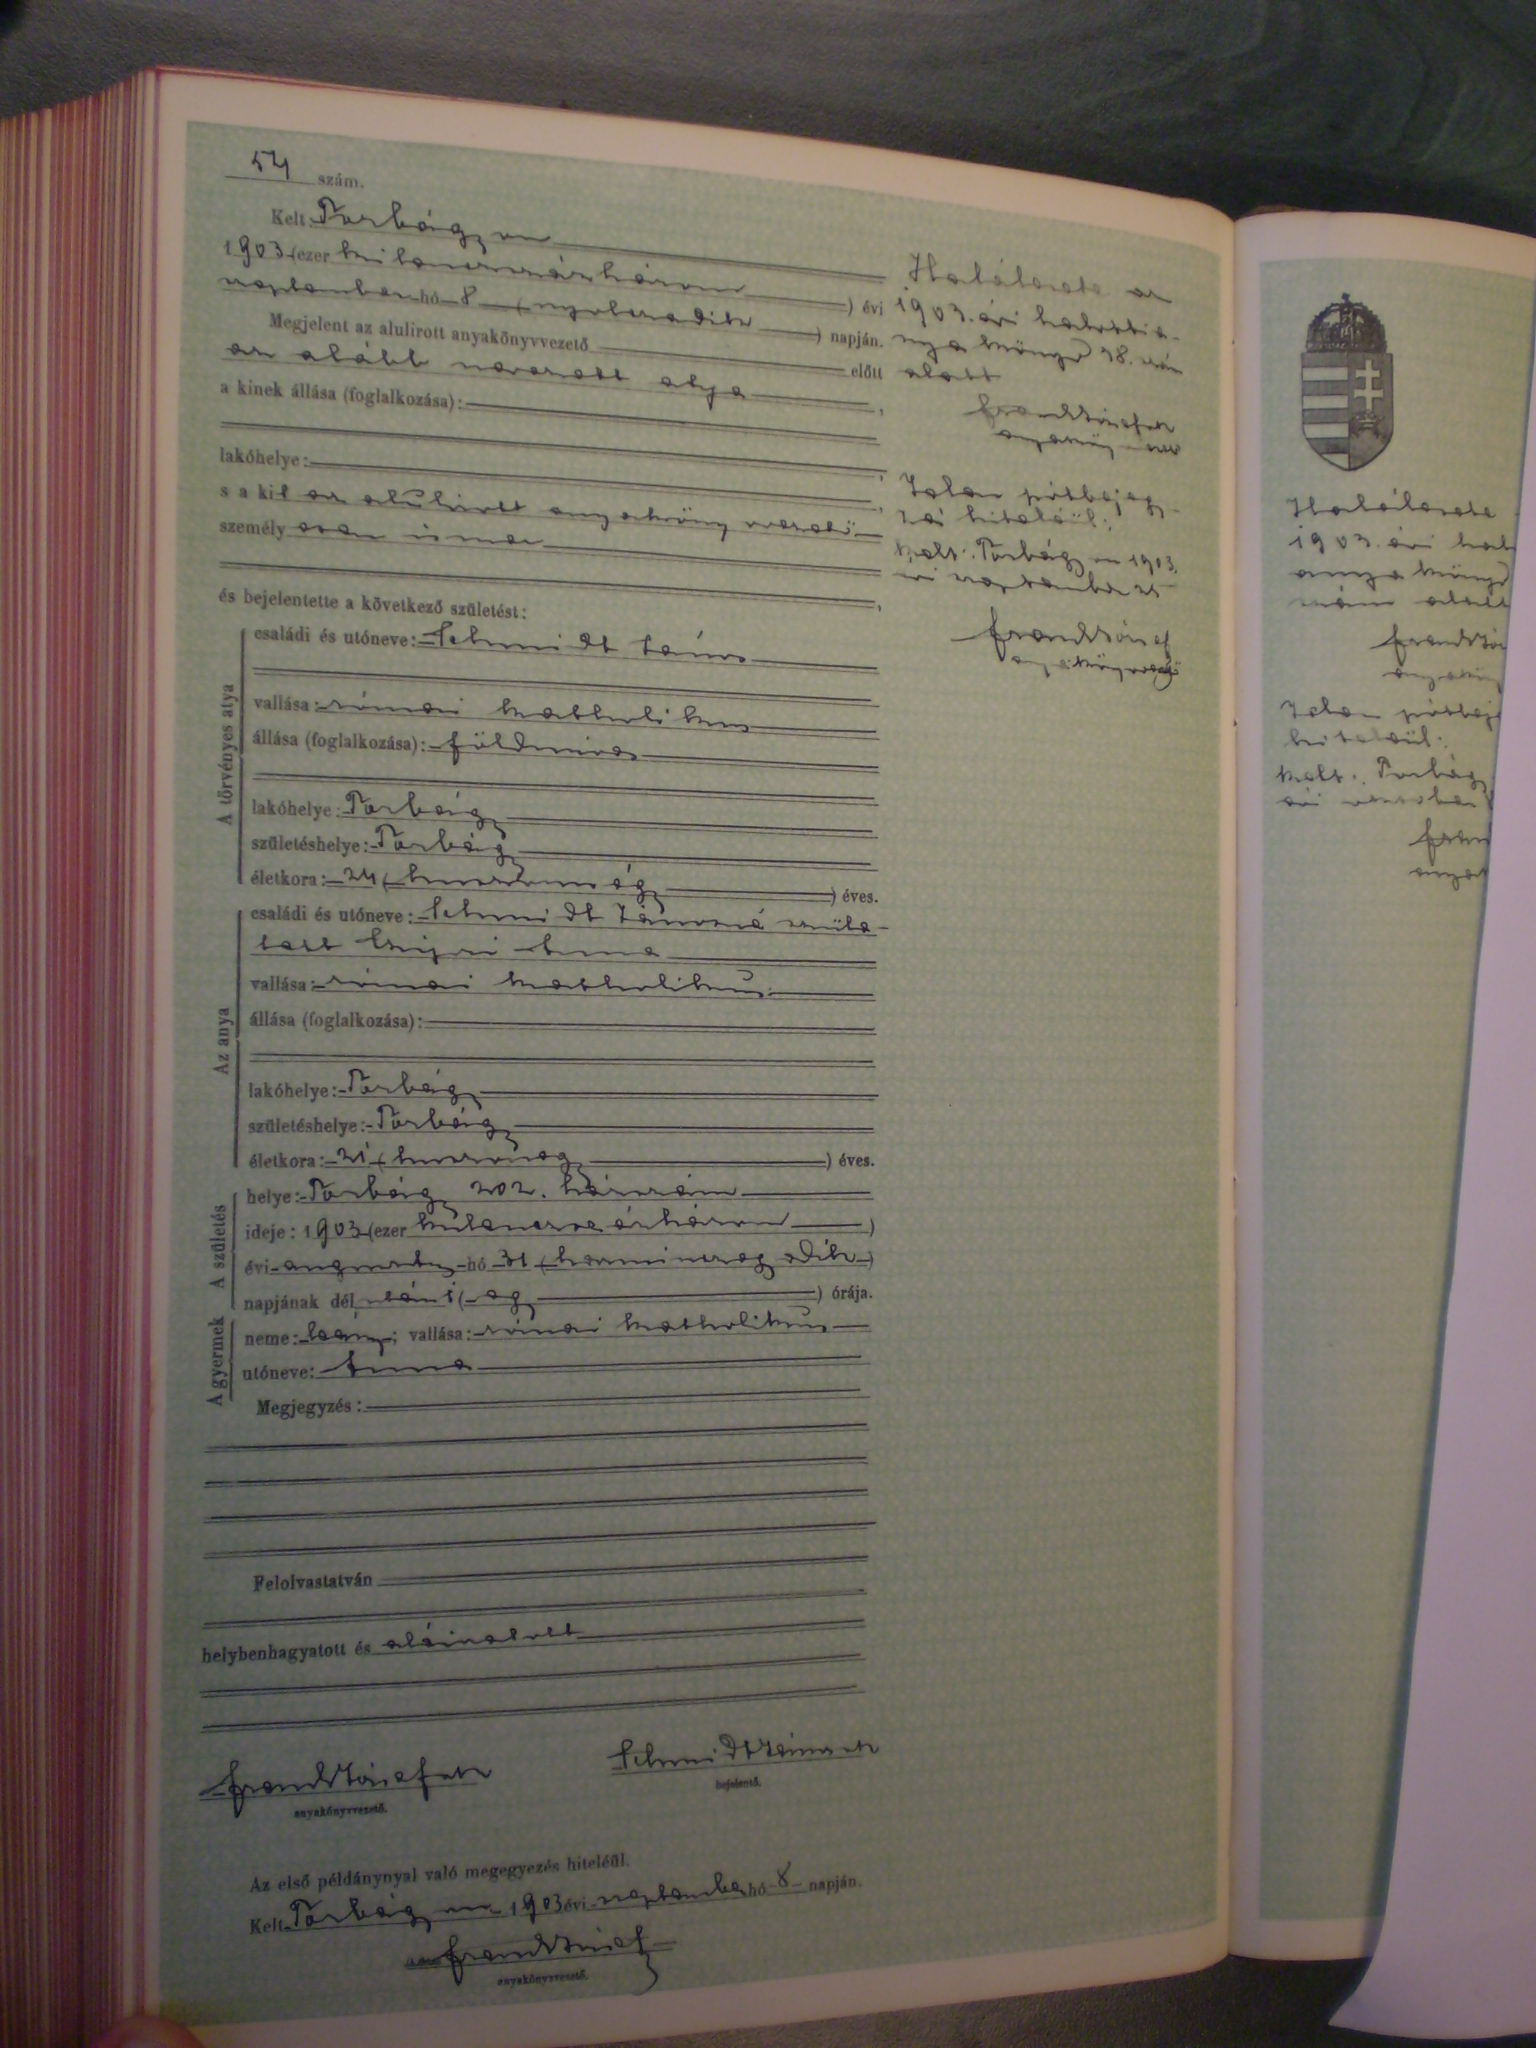 54 szám.
Kelt Torbágyon
1903 (ezer kilencszázhárom ) évi
szeptember hó 8 (nyolczadik ) napján.
Megjelent az alulirott anyakönyvvezető előtt
az alább nevezett atya ,
a kinek állása (foglalkozása):
lakóhelye:
s a kit az alulirott anyakönyvvezető
személyesen ismer
és bejelentette a következő születést:
A törvényes atya
családi és utóneve: Schmidt János
vallása: római katholikus
állása (foglalkozása): földmives
lakóhelye: Torbágy
születéshelye: Torbágy
életkora: 24 ( ) éves.
Az anya
családi és utóneve: Schmidt Jánosné szüle-
tett Anna
vallása: római katholikus
állása (foglalkozása):
lakóhelye: Torbágy
születéshelye: Torbágy
életkora: 21 (huszonegy ) éves.
A születés
helye: Torbágy 202. házszám
ideje: 1903 (ezer kilenczszázhárom )
évi augusztus hó 31 (harminczegyedik )
napjának dél után 1 (egy ) órája.
A gyermek
neme: leány; vallása: római katholikus
utóneve: Anna
Megjegyzés:
Felolvastatván
helybenhagyatott és aláiratott
Frank József
anyakönyvvezető.
Schmidt János
bejelentő.
Az első példánynyal való megegyezés hiteléül.
Kelt Torbágyon 1903 évi szeptember hó 8 napján.
Frank József
anyakönyvvezető.
Halálesete az
1903. évi halotti a-
nyakönyv 38. szám
alatt
Frank József
Jelen pótbejegy-
zés hiteléül:
Kelt: Torbágyon 1903.
évi szeptember 25
Frank József
anyakönyvvezető
Halálesete
1903. évi hal
anyakönyv
szám alatt
Jelen pótbej
hiteléül:
Kelt: Torbágy
évi